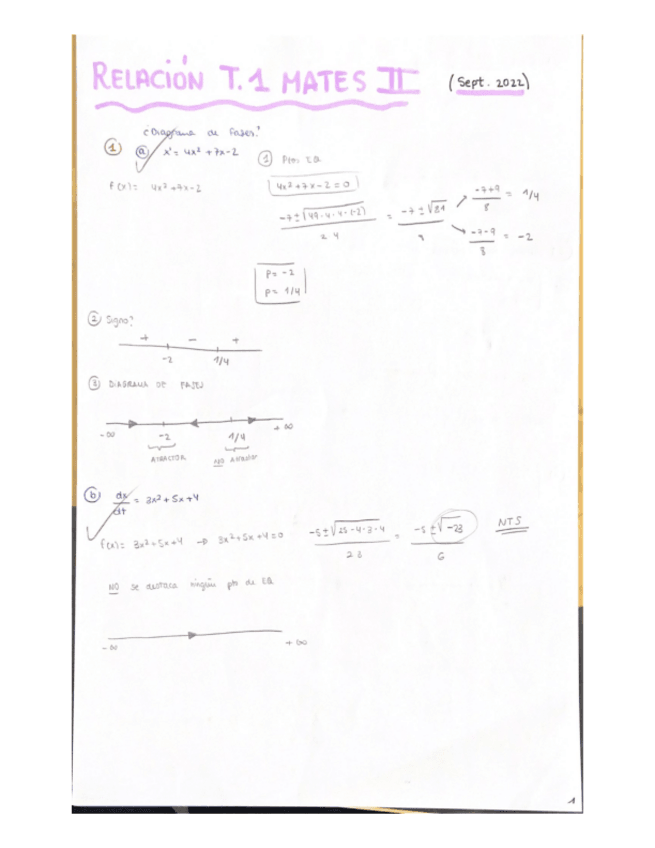 RELACIÓN T.1 MATES II (Sept. 2022)
¿Diagrama de Fases?
① ⓐ x' = 4x² + 7x - 2
① Ptos. EQ
f(x) = 4x² + 7x - 2
4x² + 7x - 2 = 0
-7 ± √(49 - 4 · 4 · (-2)) / 2·4 = -7 ± √81 / 8
-7+9 / 8 = 1/4
-7-9 / 8 = -2
p = -2
p = 1/4
② Signo?
+ - +
-2 1/4
③ DIAGRAMA DE FASES
-∞ -2 1/4 +∞
ATRACTOR NO Atractor
ⓑ dx/dt = 3x² + 5x + 4
f(x) = 3x² + 5x + 4 → 3x² + 5x + 4 = 0
-5 ± √(25 - 4 · 3 · 4) / 2·3 = -5 ± √-23 / 6
NTS
NO se destaca ningún pto de EQ
-∞ +∞
1